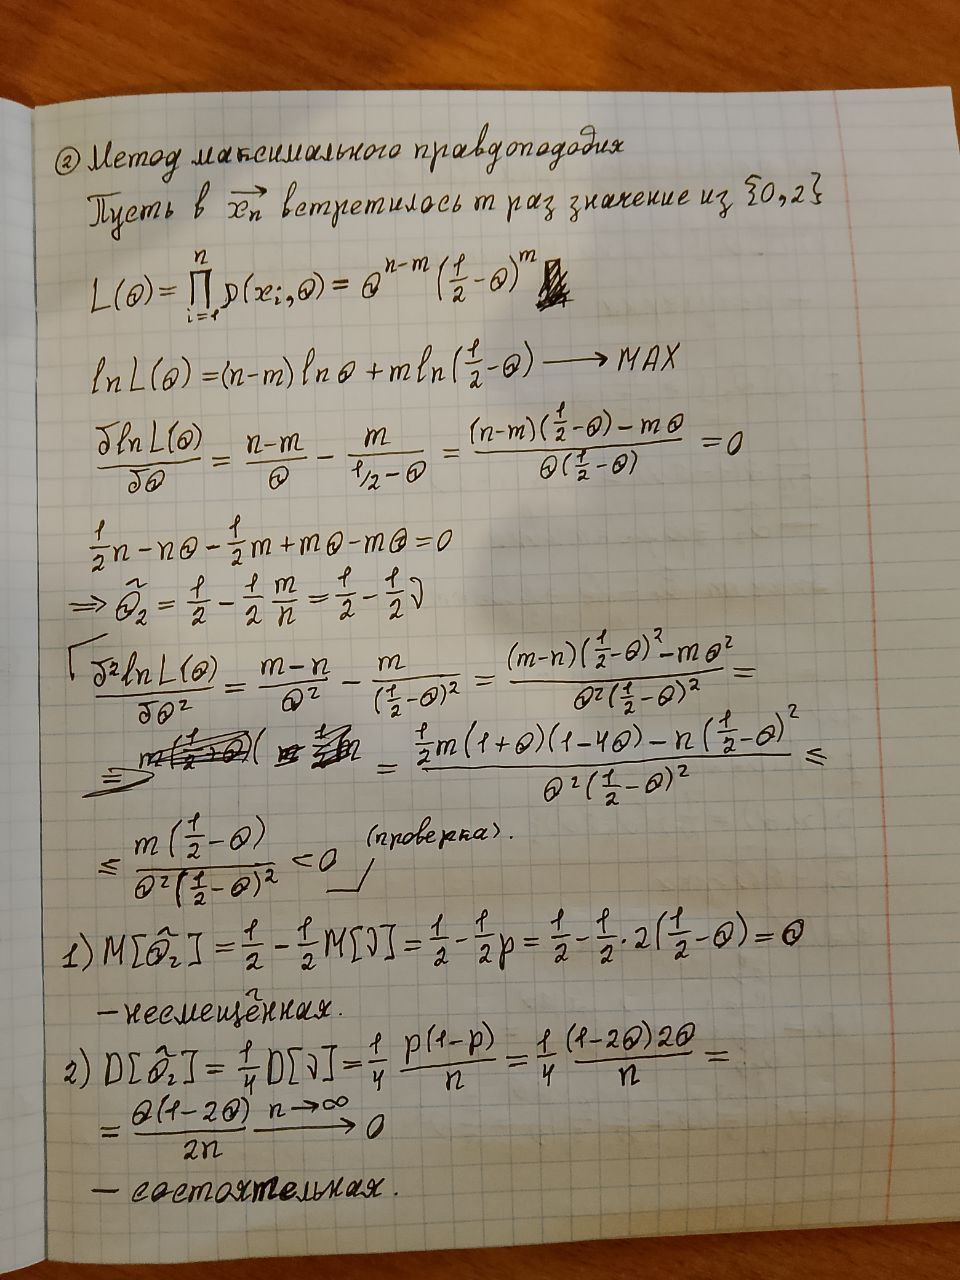 ② Метод максимального правдоподобия
Пусть в x⃗ₙ встретилось m раз значение из {0,2}
L(θ) = ∏_{i=1}^{n} p(xᵢ,θ) = θ^{n-m} (1/2 - θ)^m
ln L(θ) = (n-m) ln θ + m ln(1/2 - θ) ⟶ MAX
δ ln L(θ)/δθ = (n-m)/θ - m/(1/2 - θ) = ((n-m)(1/2 - θ) - mθ)/(θ(1/2 - θ)) = 0
1/2 n - nθ - 1/2 m + mθ - mθ = 0
⇒ θ̃₂ = 1/2 - 1/2 m/n = 1/2 - 1/2 ν
δ² ln L(θ)/δθ² = (m-n)/θ² - m/(1/2 - θ)² = ((m-n)(1/2 - θ)² - mθ²)/(θ²(1/2 - θ)²) =
= (1/2 m(1+θ)(1-4θ) - n(1/2 - θ)²)/(θ²(1/2 - θ)²) ≤
≤ m(1/2 - θ)/(θ²(1/2 - θ)²) < 0 (проверка).
1) M[θ̃₂] = 1/2 - 1/2 M[ν] = 1/2 - 1/2 p = 1/2 - 1/2 · 2(1/2 - θ) = θ
- несмещённая.
2) D[θ̃₂] = 1/4 D[ν] = 1/4 p(1-p)/n = 1/4 (1-2θ)2θ/n =
= θ(1-2θ)/2n ⟶ 0 n→∞
- состоятельная.